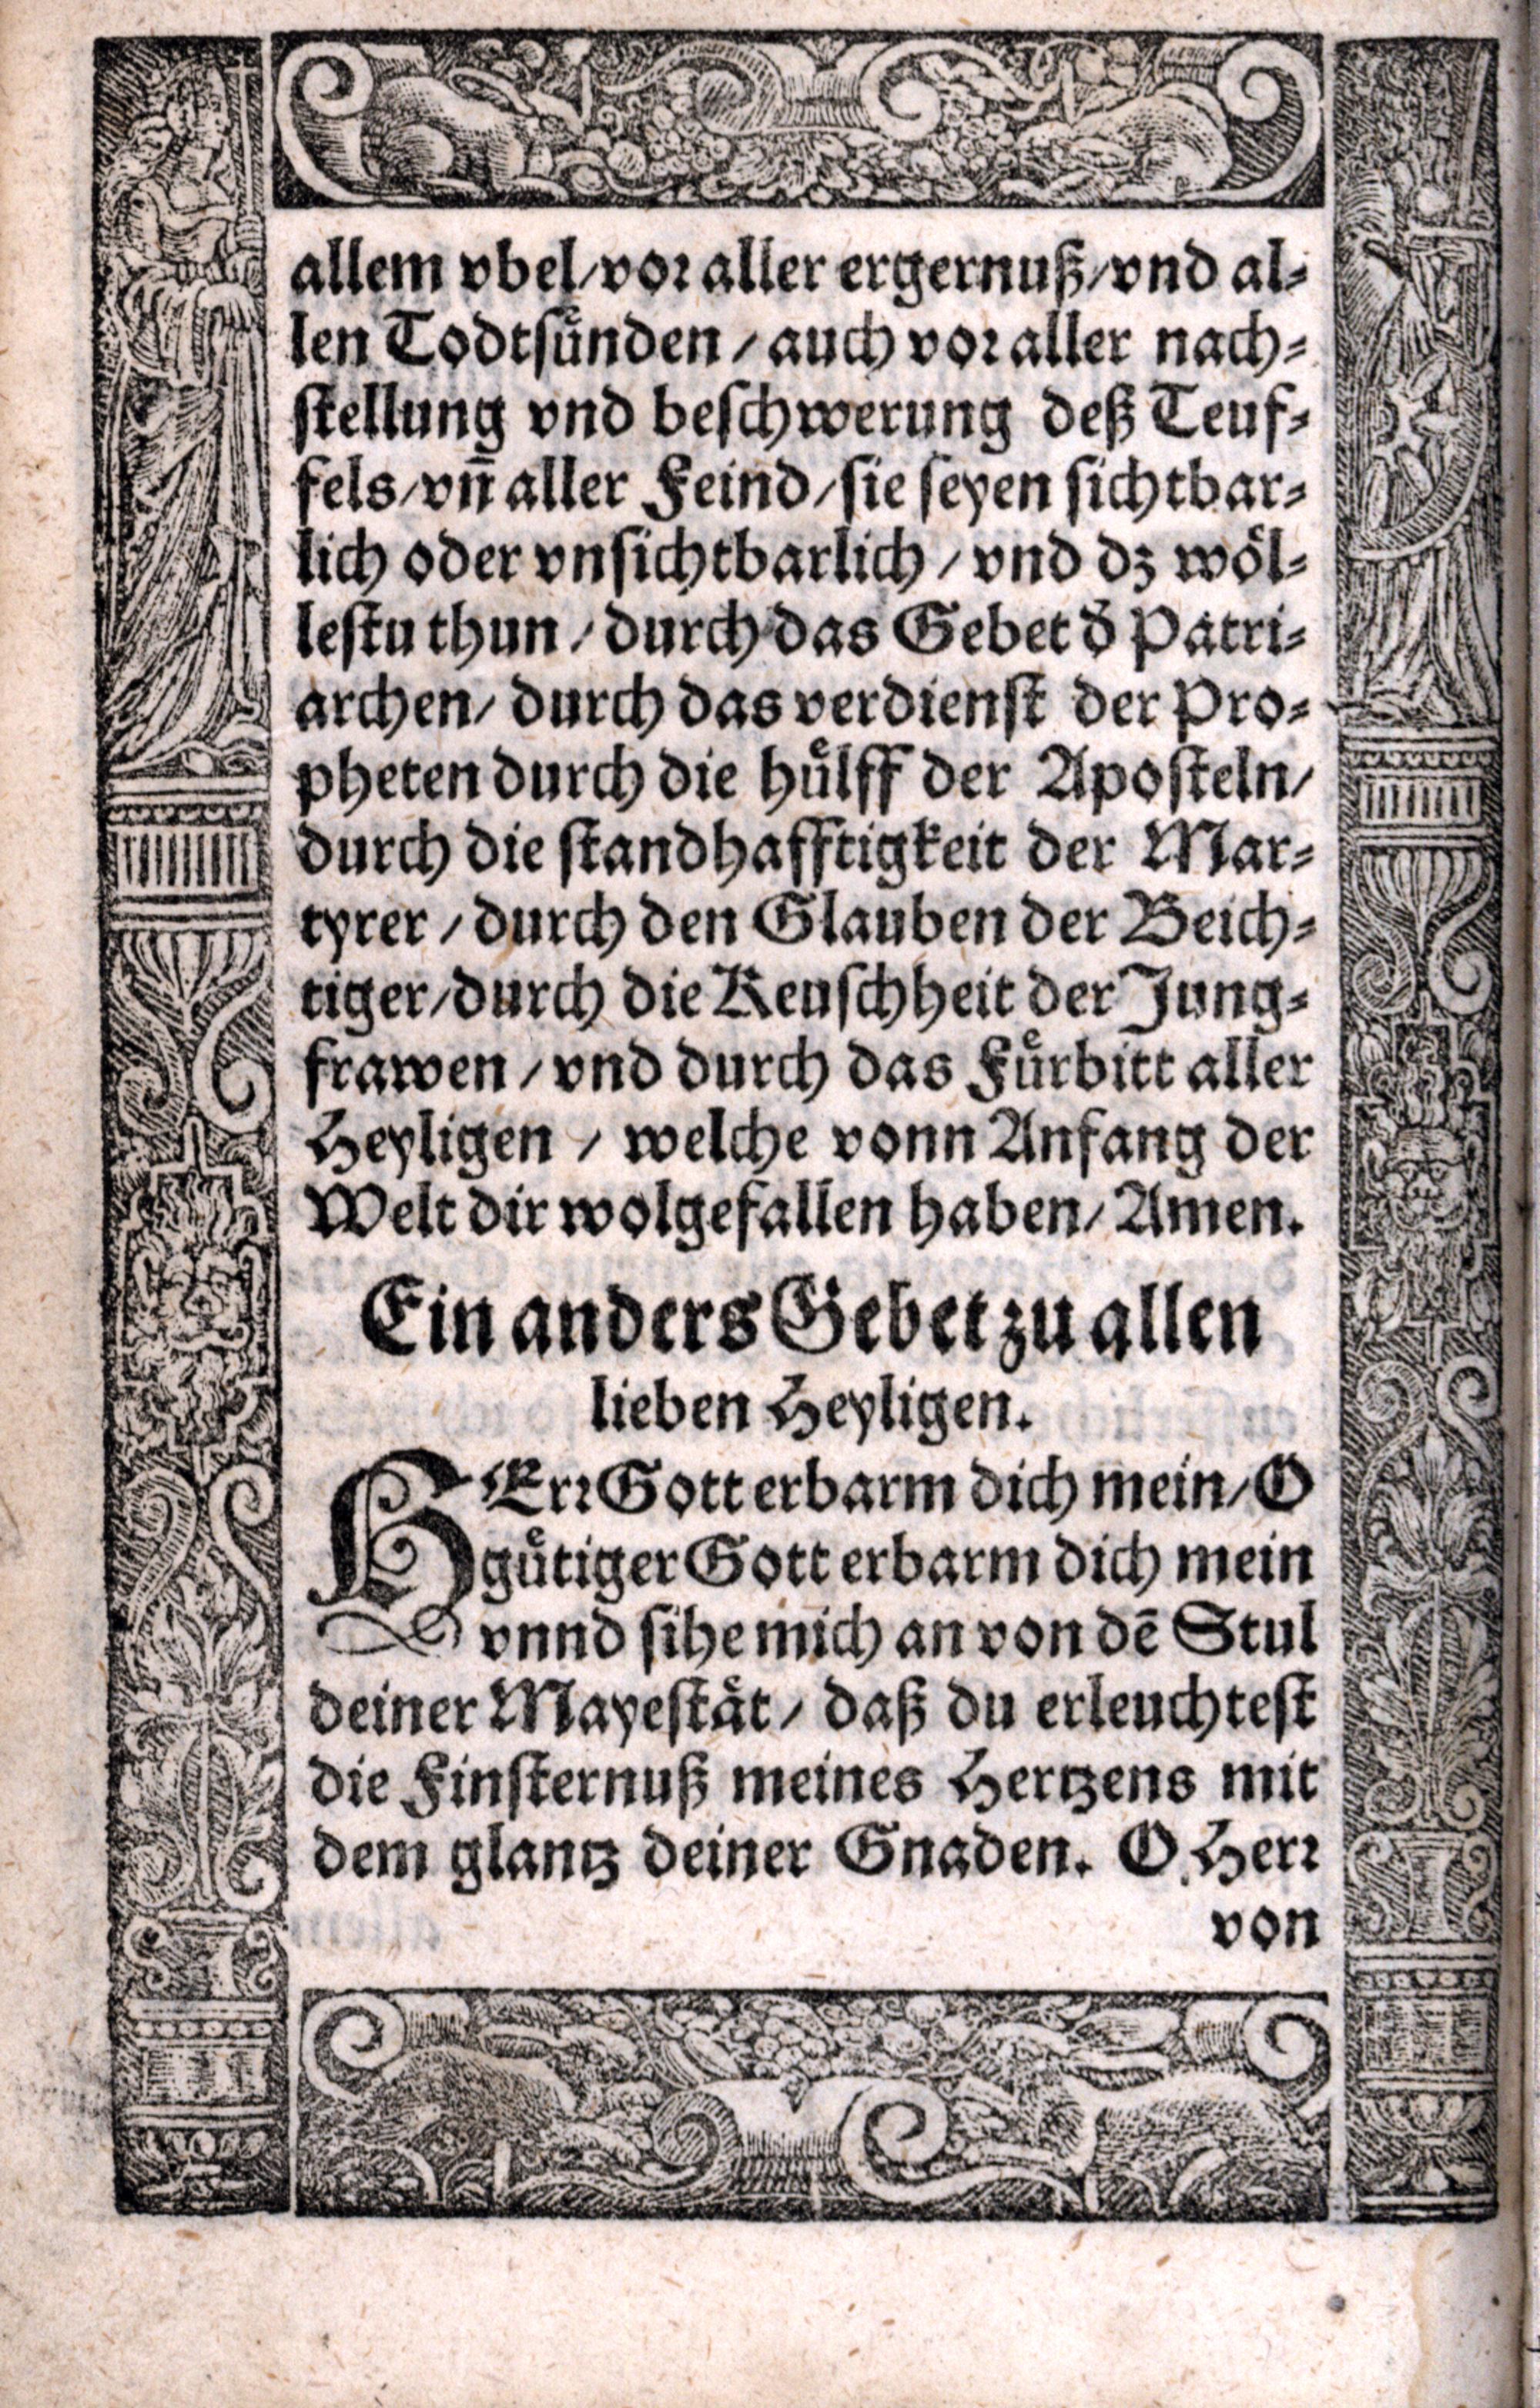 allem vbel/vor aller ergernuß/vnd al⸗
len Todtsuͤnden / auch vor aller nach⸗
stellung vnd beschwerung deß Teuf⸗
fels/vñ aller Feind/sie seyen sichtbar⸗
lich oder vnsichtbarlich / vnd dz woͤl⸗
lestu thun / durch das Gebet d̕ Patri⸗
archen/ durch das verdienst der Pro⸗
pheten durch die huͤlff der Aposteln/
durch die standhafftigkeit der Mar⸗
tyrer / durch den Glauben der Beich⸗
tiger/durch die Keuschheit der Jung⸗
frawen / vnd durch das Fuͤrbitt aller
Heyligen / welche vonn Anfang der
Welt dir wolgefallen haben/ Amen.
Ein anders Gebet zu allen
lieben Heyligen.
HErr Gott erbarm dich mein/ O
guͤtiger Gott erbarm dich mein
vnnd sihe mich an von dē Stul
deiner Mayestaͤt / daß du erleuchtest
die Finsternuß meines Hertzens mit
dem glantz deiner Gnaden. O Herr
von